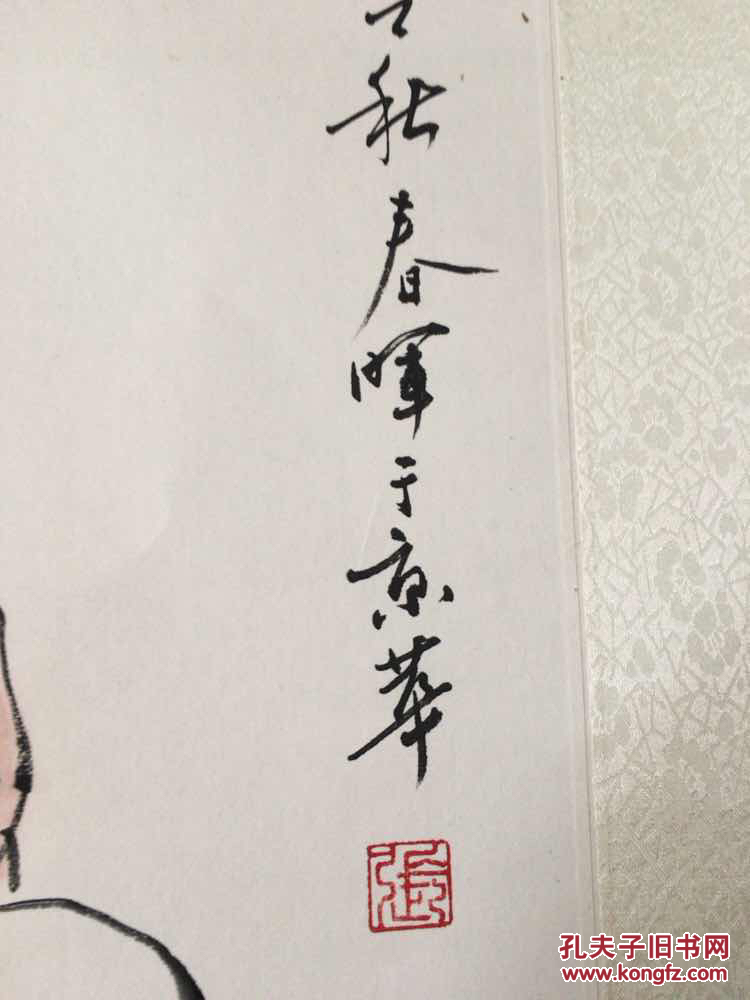 秋春暉于京華
張
孔夫子旧书网
www.kongfz.com